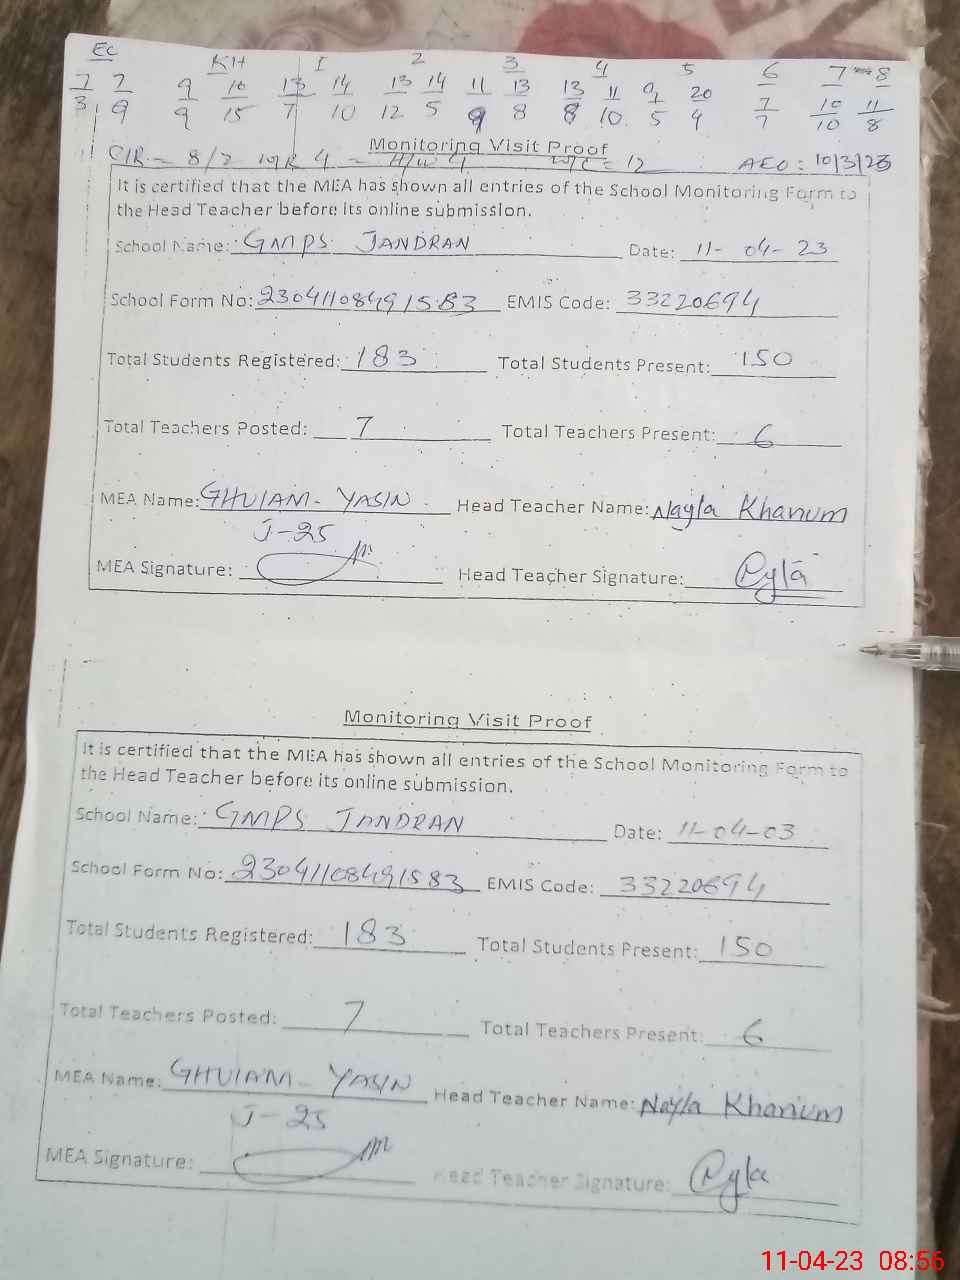 EC KH 1 2 3 4 5 6 7 8
7 7 9 16 13 14 13 14 11 13 13 11 9 20 7 10 11
3 9 9 15 7 10 12 5 9 8 8 10 5 4 7 10 8
Monitoring Visit Proof
CIR = 8/7 4 = H/W 4 W/C = 12 AEO: 10/3/23
It is certified that the MEA has shown all entries of the School Monitoring Form to
the Head Teacher before its online submission.
School Name: GMPS JANDRAN Date: 11-04-23
School Form No: 23041108491583 EMIS Code: 33220694
Total Students Registered: 183 Total Students Present: 150
Total Teachers Posted: 7 Total Teachers Present: 6
MEA Name: GHULAM-YASIN Head Teacher Name: Nayla Khanum
J-25
MEA Signature: Head Teacher Signature:
Monitoring Visit Proof
It is certified that the MEA has shown all entries of the School Monitoring Form to
the Head Teacher before its online submission.
School Name: GMPS JANDRAN Date: 11-04-03
School Form No: 23041108491583 EMIS Code: 33220694
Total Students Registered: 183 Total Students Present: 150
Total Teachers Posted: 7 Total Teachers Present: 6
MEA Name: GHULAM-YASIN Head Teacher Name: Nayla Khanum
J-25
MEA Signature: Head Teacher Signature:
11-04-23 08:56